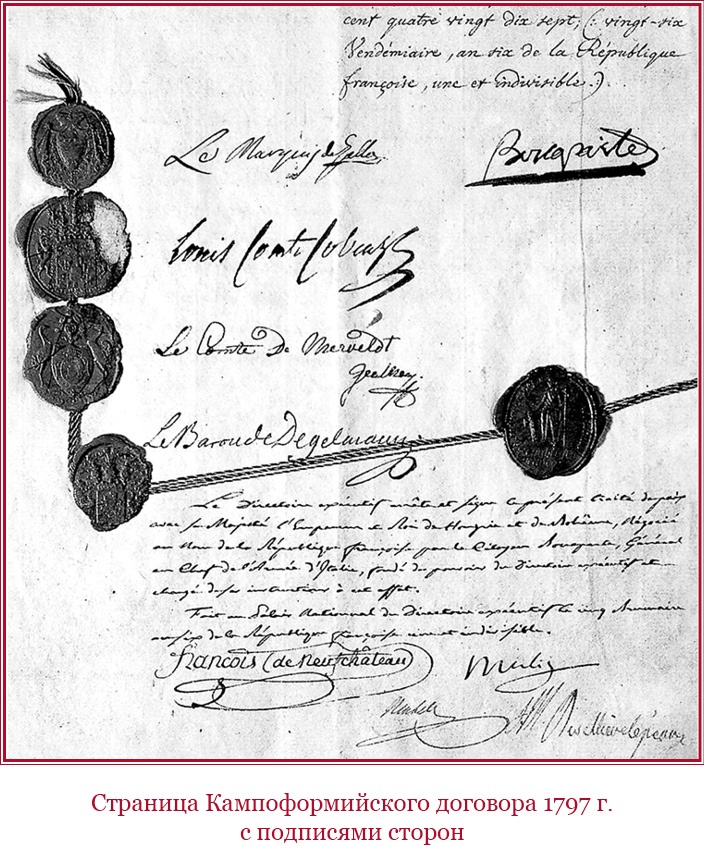 cent quatre vingt dix sept, (: vingt-six
Vendémiaire, an six de la République
françoise, une et indivisible.:)
Le Marquis de Gallo
Bonaparte
Louis Comte Cobenzl
Le Comte De Merveldt
Le Baron de Degelmann
Le Directoire exécutif arrête et signe le présent traité de paix
avec sa Majesté l'Empereur et Roi de Hongrie et de Bohême, négocié
au Nom de la République françoise par le Citoyen Bonaparte, Général
en Chef de l'Armée d'Italie, fondé de pouvoirs du Directoire exécutif et
chargé de ses instructions à cet effet.
Fait au Palais National du Directoire exécutif le cinq Brumaire
an six de la République françoise une et indivisible.
françois (de neufchâteau)
Merlin
Страница Кампоформийского договора 1797 г.
с подписями сторон